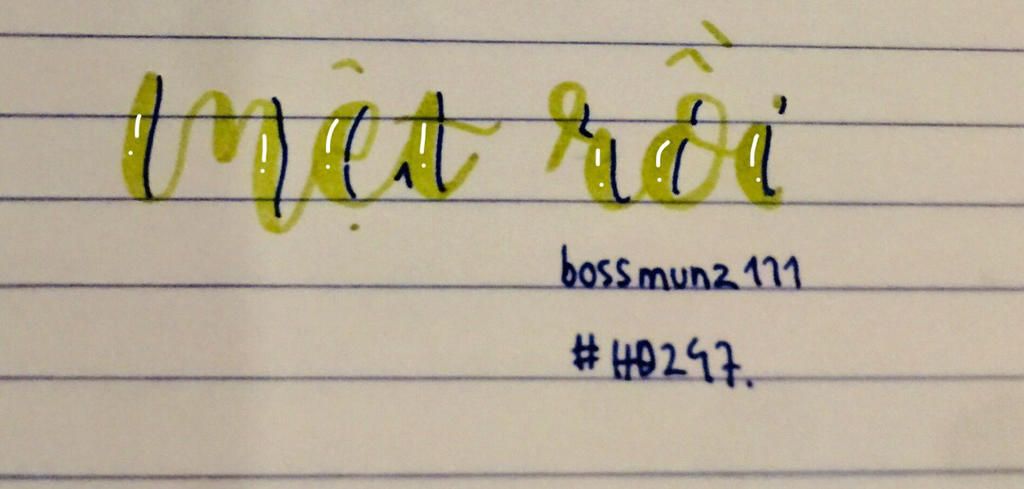 Mệt rồi
bossmunz111
#HĐ247.